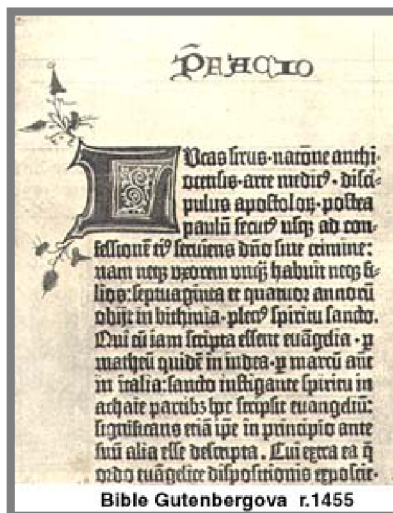 P̄FACIO
LVcas sirus · natōne anthi-
ocensis · arte medicꝰ · disci-
pulus apostoloꝝ · postea
paulū secutꝰ usqꝫ ad con-
fessionē eiꝰ serviens dño sine crimine:
nam neqꝫ uxorem unqꝫ habuit neqꝫ fi-
lios: septuaginta et quatuor annoꝝ
obijt in bithinia · plenꝰ spiritu sancto.
Qui cū iam scripta essent evāgelia · ꝑ
matheū quidē in iudea · ꝑ marcū aūt
in italia: sancto instigante spiritu in
achaie partibꝫ hoc scripsit euangeliū:
significans etiā ipe in principio ante
suū alia esse descripta. Cui extra ea q̄
ordo euāgelice dispositionis exposcit·
Bible Gutenbergova r.1455